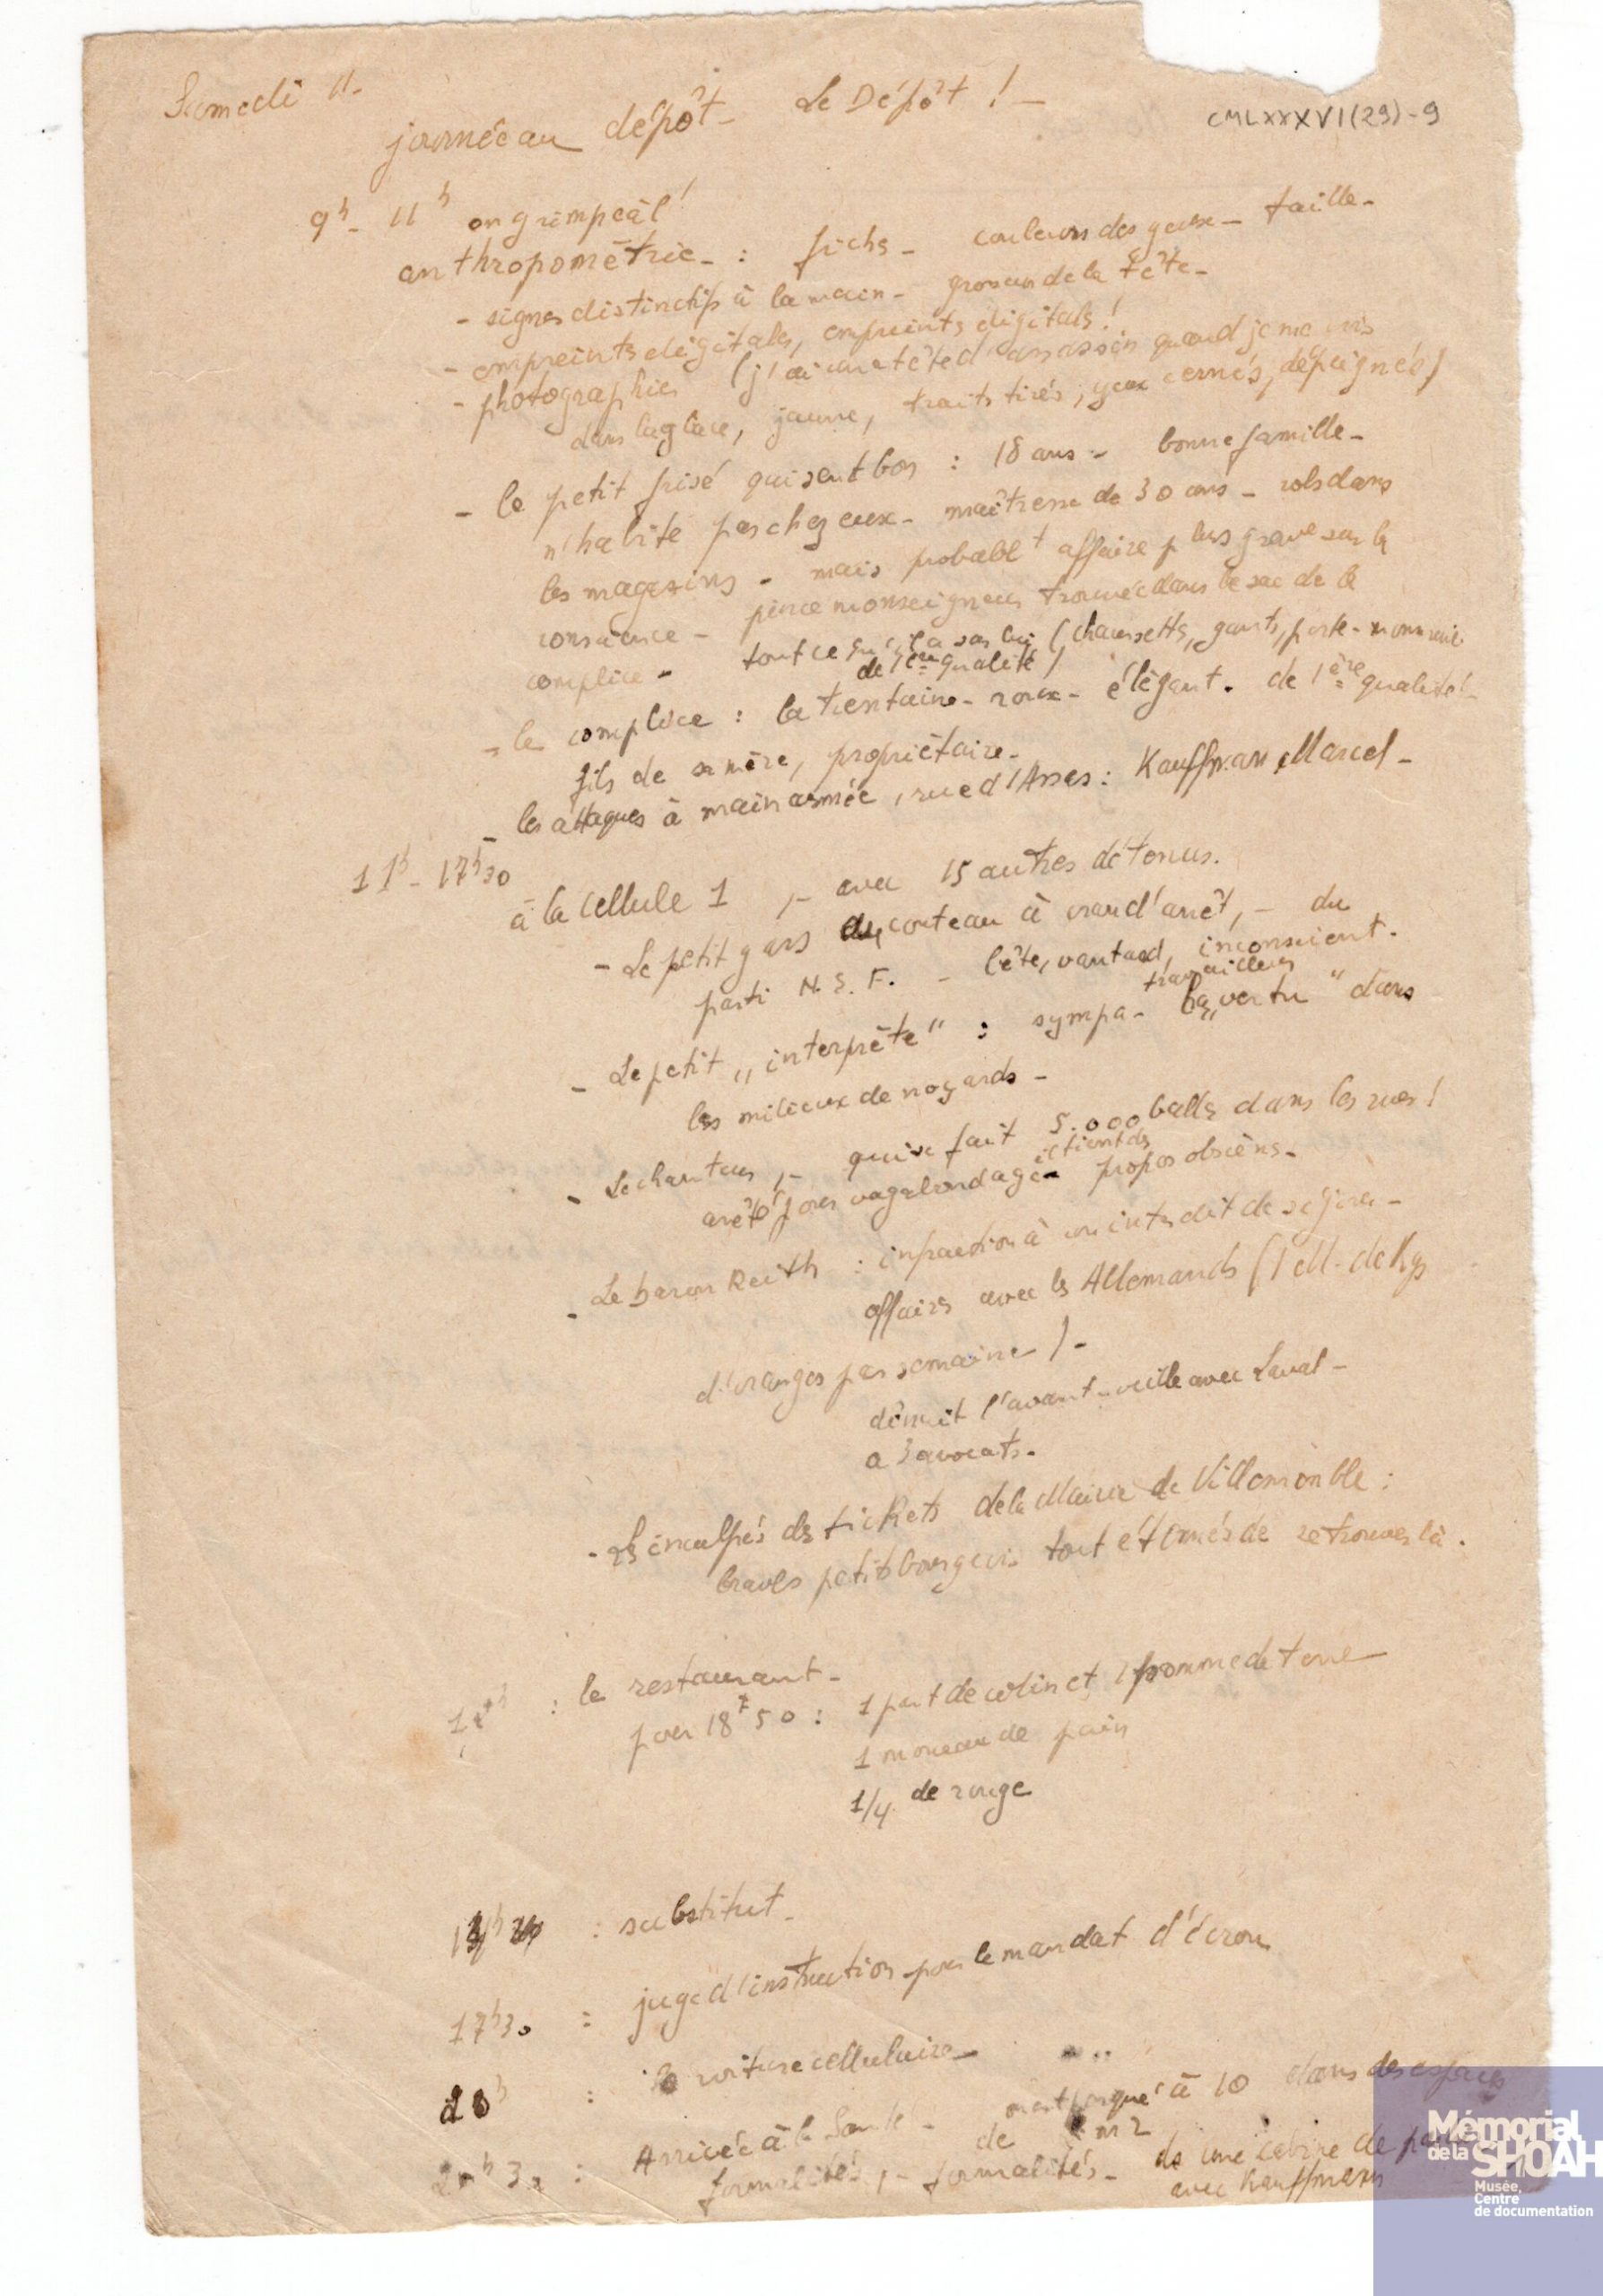 Samedi 11-
journée au dépôt - Le Dépôt ! -
CMLXXXVI(29)-9
9h - 11h on grimpe à l'
anthropométrie - : fiche - couleurs des yeux - taille -
- signes distinctifs à la main - grosseur de la tête -
- empreintes digitales, empreintes digitales !
- photographies (j'ai une tête d'assassin quand je me vis
dans la glace, jaune, traits tirés, yeux cernés, dépeignée)
- le petit frisé qui sent bon : 18 ans - bonne famille -
n'habite pas chez eux - maîtresse de 30 ans - vols dans
les magasins - mais probablt affaire plus grave sur la
conscience - pince monseigneur trouvée dans le sac de le
complice - tout ce qu'il a sur lui (chaussettes, gants, porte-monnaie
de 1ère qualité)
- le complice : la trentaine - roux - élégant. de 1ère qualité !-
fils de sa mère, propriétaire -
- les attaques à main armée, rue d'Assas : Kauffman Marcel -
11h - 17h30
à la cellule 1, - avec 15 autres détenus.
- Le petit gars au couteau à cran d'arrêt, - du
parti N.S.F. - bête, vantard, inconscient.
travailleur
- Le petit "interprète" : sympa - la "vertu" dans
les milieux de
- Le chanteur, - qui se fait 5.000 balles dans les rues !
arrêté pour vagabondage - il tient des propos obscènes -
- Le baron Reith : infraction à un interdit de séjour -
affaires avec les Allemands (1 M. de Kgs
d'oranges par semaine) -
dînait l'avant-veille avec Laval -
a 3 avocats -
- Les inculpés des tickets de la Mairie de Villemomble :
braves petits bourgeois tout étonnés de se trouver là.
: le restaurant -
pour 18f50 : 1 part de colin et 1 pomme de terre
1 morceau de pain
1/4 de rouge
: substitut -
17h30 : juge d'instruction pour le mandat d'écrou
20h : la voiture cellulaire -
20h30 : Arrivée à la Santé - à 10 dans des espaces
de m2
formalités, - formalités - ds une cabine de
avec Kauffmann
Mémorial
de la SHOAH
Musée,
Centre
de documentation